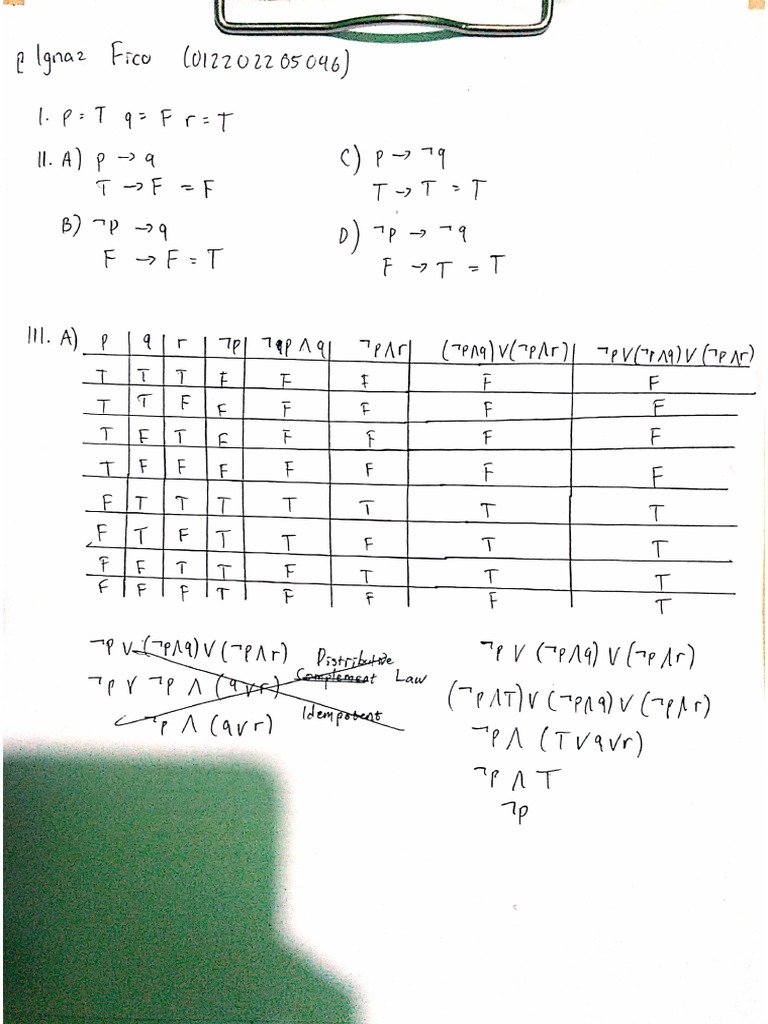 Ignaz Fico (012202205096)
I. p = T q = F r = T
II. A) p → q
T → F = F
B) ¬p → q
F → F = T
C) p → ¬q
T → T = T
D) ¬p → ¬q
F → T = T
III. A) p | q | r | ¬p | ¬p ∧ q | ¬p ∧ r | (¬p∧q) ∨ (¬p∧r) | ¬p ∨ (¬p∧q) ∨ (¬p∧r)
T | T | T | F | F | F | F | F
T | T | F | F | F | F | F | F
T | F | T | F | F | F | F | F
T | F | F | F | F | F | F | F
F | T | T | T | T | T | T | T
F | T | F | T | T | F | T | T
F | F | T | T | F | T | T | T
F | F | F | T | F | F | F | T
¬p ∨ (¬p∧q) ∨ (¬p∧r) Distributive
¬p ∨ ¬p ∧ (q∨r) Complement Law
¬p ∧ (q∨r) Idempotent
¬p ∨ (¬p∧q) ∨ (¬p∧r)
(¬p∧T) ∨ (¬p∧q) ∨ (¬p∧r)
¬p ∧ (T∨q∨r)
¬p ∧ T
¬p